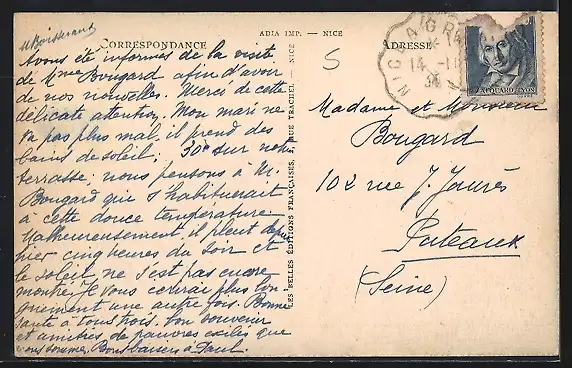 M Boisserand
CORRESPONDANCE
ADIA IMP. — NICE
ADRESSE
Avons été informés de la visite
de Mme Bougard afin d'avoir
de nos nouvelles. Merci de cette
délicate attention. Mon mari ne
va pas plus mal il prend des
bains de soleil; 30° sur notre
terrasse; nous pensons à M.
Bougard qui s'habituerait
à cette douce température
Malheureusement il pleut depuis
hier cinq heures du soir et
le soleil ne s'est pas encore
montré. Je vous écrirai plus lon
guement une autre fois. Bonne
santé à tous trois. bon souvenir
et amitiés de pauvres exilés que
nous sommes, Bons baisers à Paul.
LES BELLES ÉDITIONS FRANÇAISES, RUE TRACHEL - NICE
S
14 - 11
JACQUARD LYON
Madame et Monsieur
Bougard
102 rue J. Jaurès
Puteaux
(Seine)